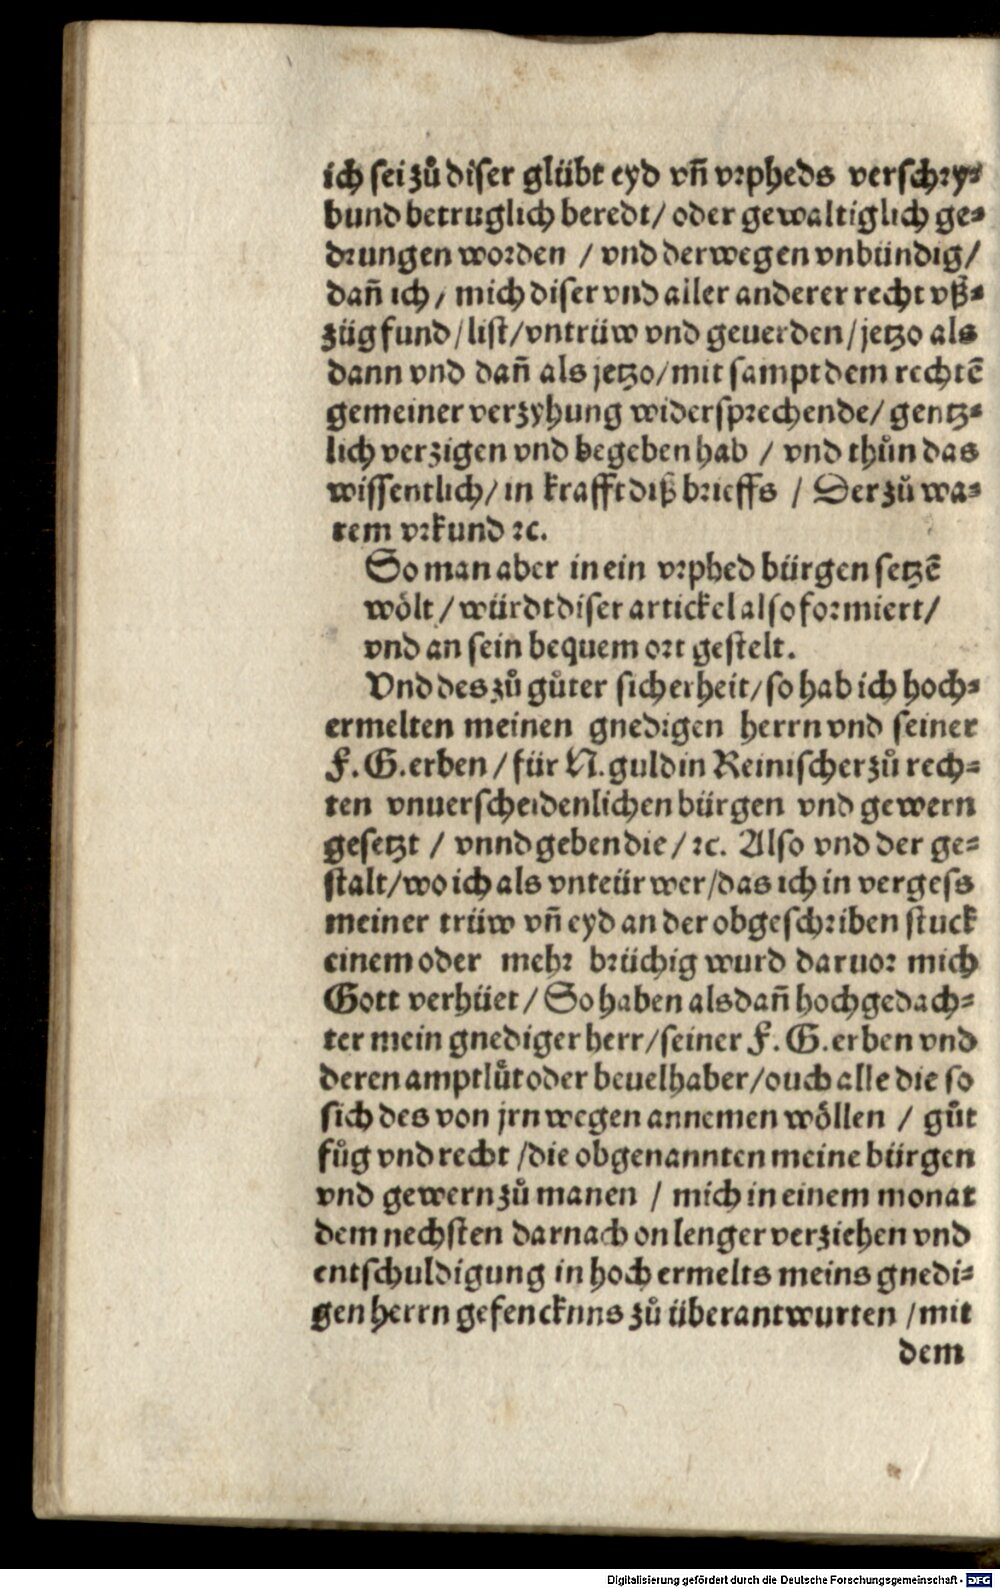 ich sei zů diser glübt eyd vñ vrpheds verschry⸗
bund betruglich beredt/ oder gewaltiglich ge⸗
drungen worden / vnd derwegen vnbündig/
dañ ich, mich diser vnd aller anderer recht vß⸗
züg fund/list/vntrüw vnd geuerden/jetzo als
dann vnd dañ als jetzo/mit sampt dem rechtē
gemeiner verzyhung widersprechende/ gentz⸗
lich verzigen vnd begeben hab / vnd thůn das
wissentlich/ in krafft diß brieffs / Der zů wa⸗
rem vrkund ꝛc.
So man aber in ein vrphed bürgen setzē
wölt/würdt diser artickel also formiert/
vnd an sein bequem ort gestelt.
Vnd des zů gůter sicherheit/so hab ich hoch⸗
ermelten meinen gnedigen herrn vnd seiner
F. G. erben / für N. guldin Reinischer zů rech⸗
ten vnuerscheidenlichen bürgen vnd gewern
gesetzt / vnnd geben die / ꝛc. Also vnd der ge⸗
stalt/wo ich als vnteür wer/das ich in vergess
meiner trüw vñ eyd an der obgeschriben stuck
einem oder mehr brüchig wurd daruor mich
Gott verhüet / So haben alsdañ hochgedach⸗
ter mein gnediger herr/seiner F. G. erben vnd
deren amptlůt oder beuelhaber/ouch alle die so
sich des von jrn wegen annemen wöllen / gůt
fůg vnd recht /die obgenannten meine bürgen
vnd gewern zů manen / mich in einem monat
dem nechsten darnach on lenger verziehen vnd
entschuldigung in hoch ermelts meins gnedi⸗
gen herrn gefencknns zů überantwurten /mit
dem
Digitalisierung gefördert durch die Deutsche Forschungsgemeinschaft - DFG